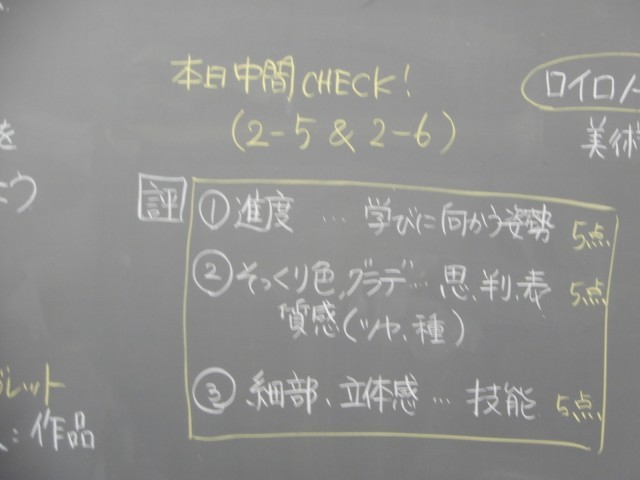 本日中間CHECK!
(2-5 & 2-6)
ロイロノ
美術
を
評
①進度 … 学びに向かう姿勢 5点
②そっくり色、グラデ… 思、判、表 5点
質感(ツヤ、種)
③細部、立体感… 技能 5点
ブレット
:作品